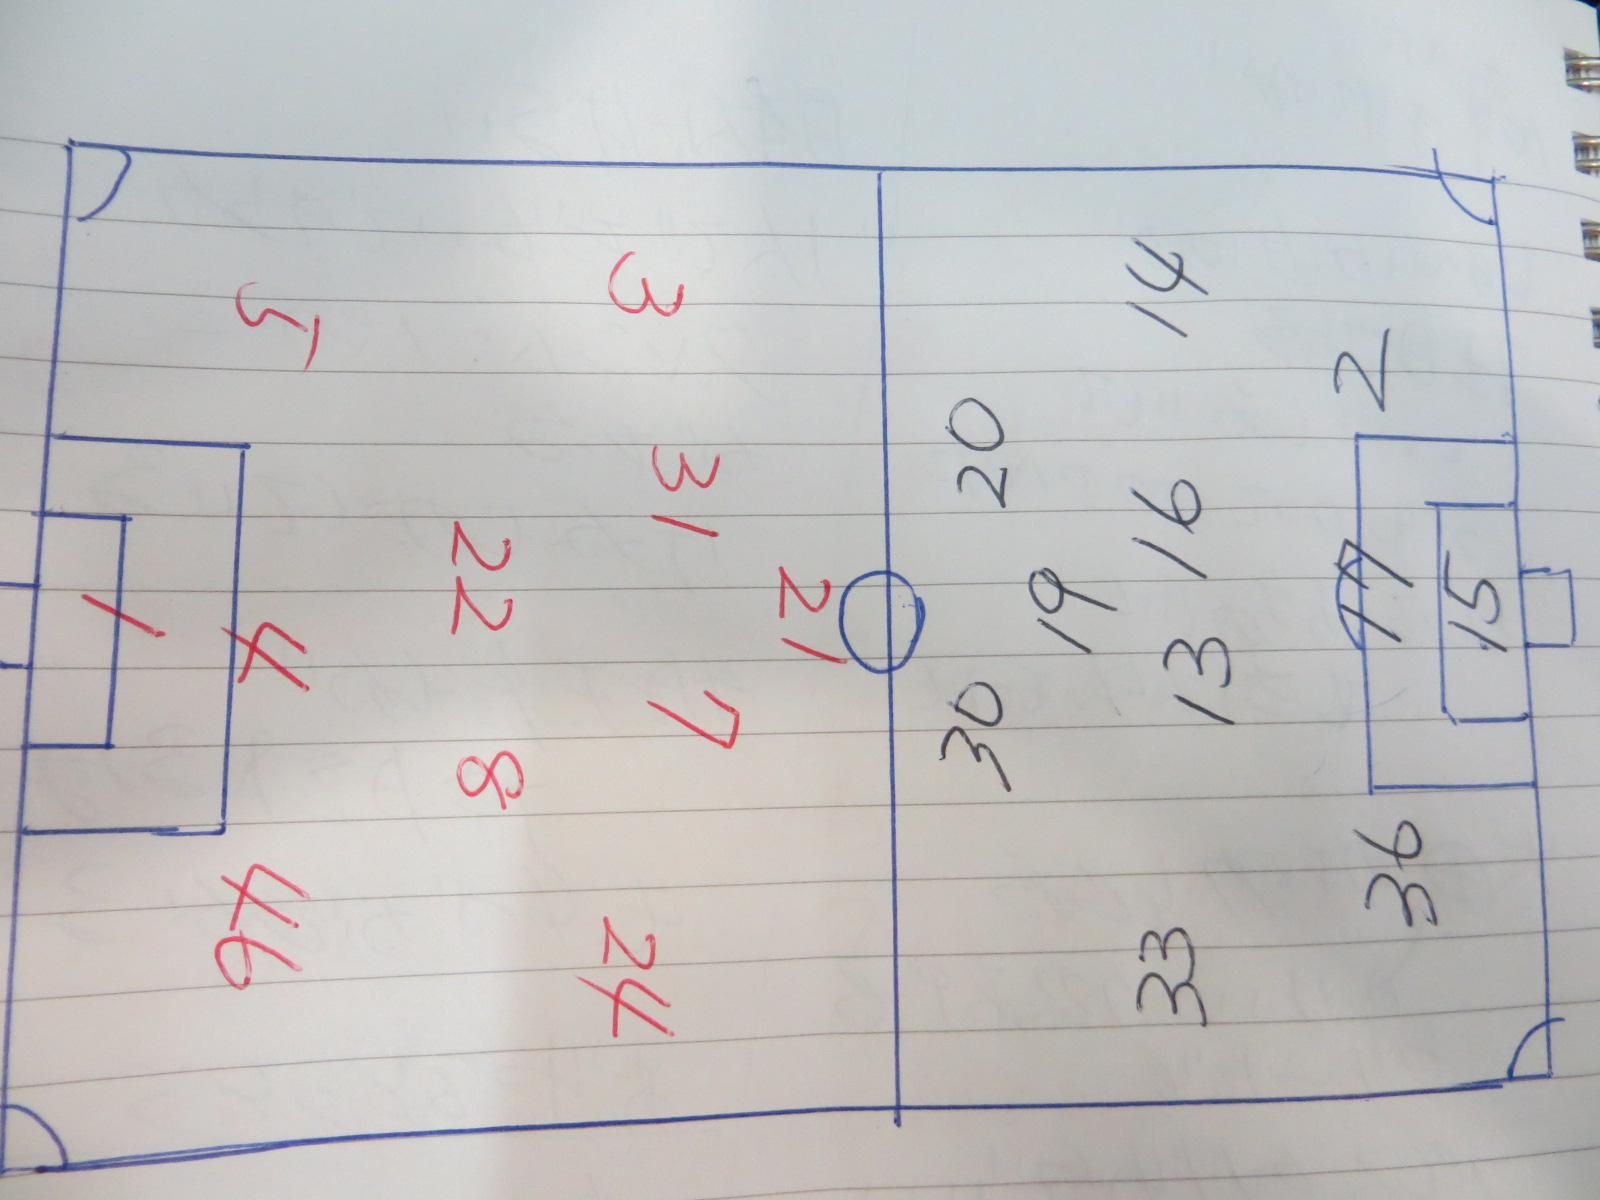 5
3
1
4
46
22
8
31
7
24
21
20
30
19
14
16
13
33
2
17
36
15